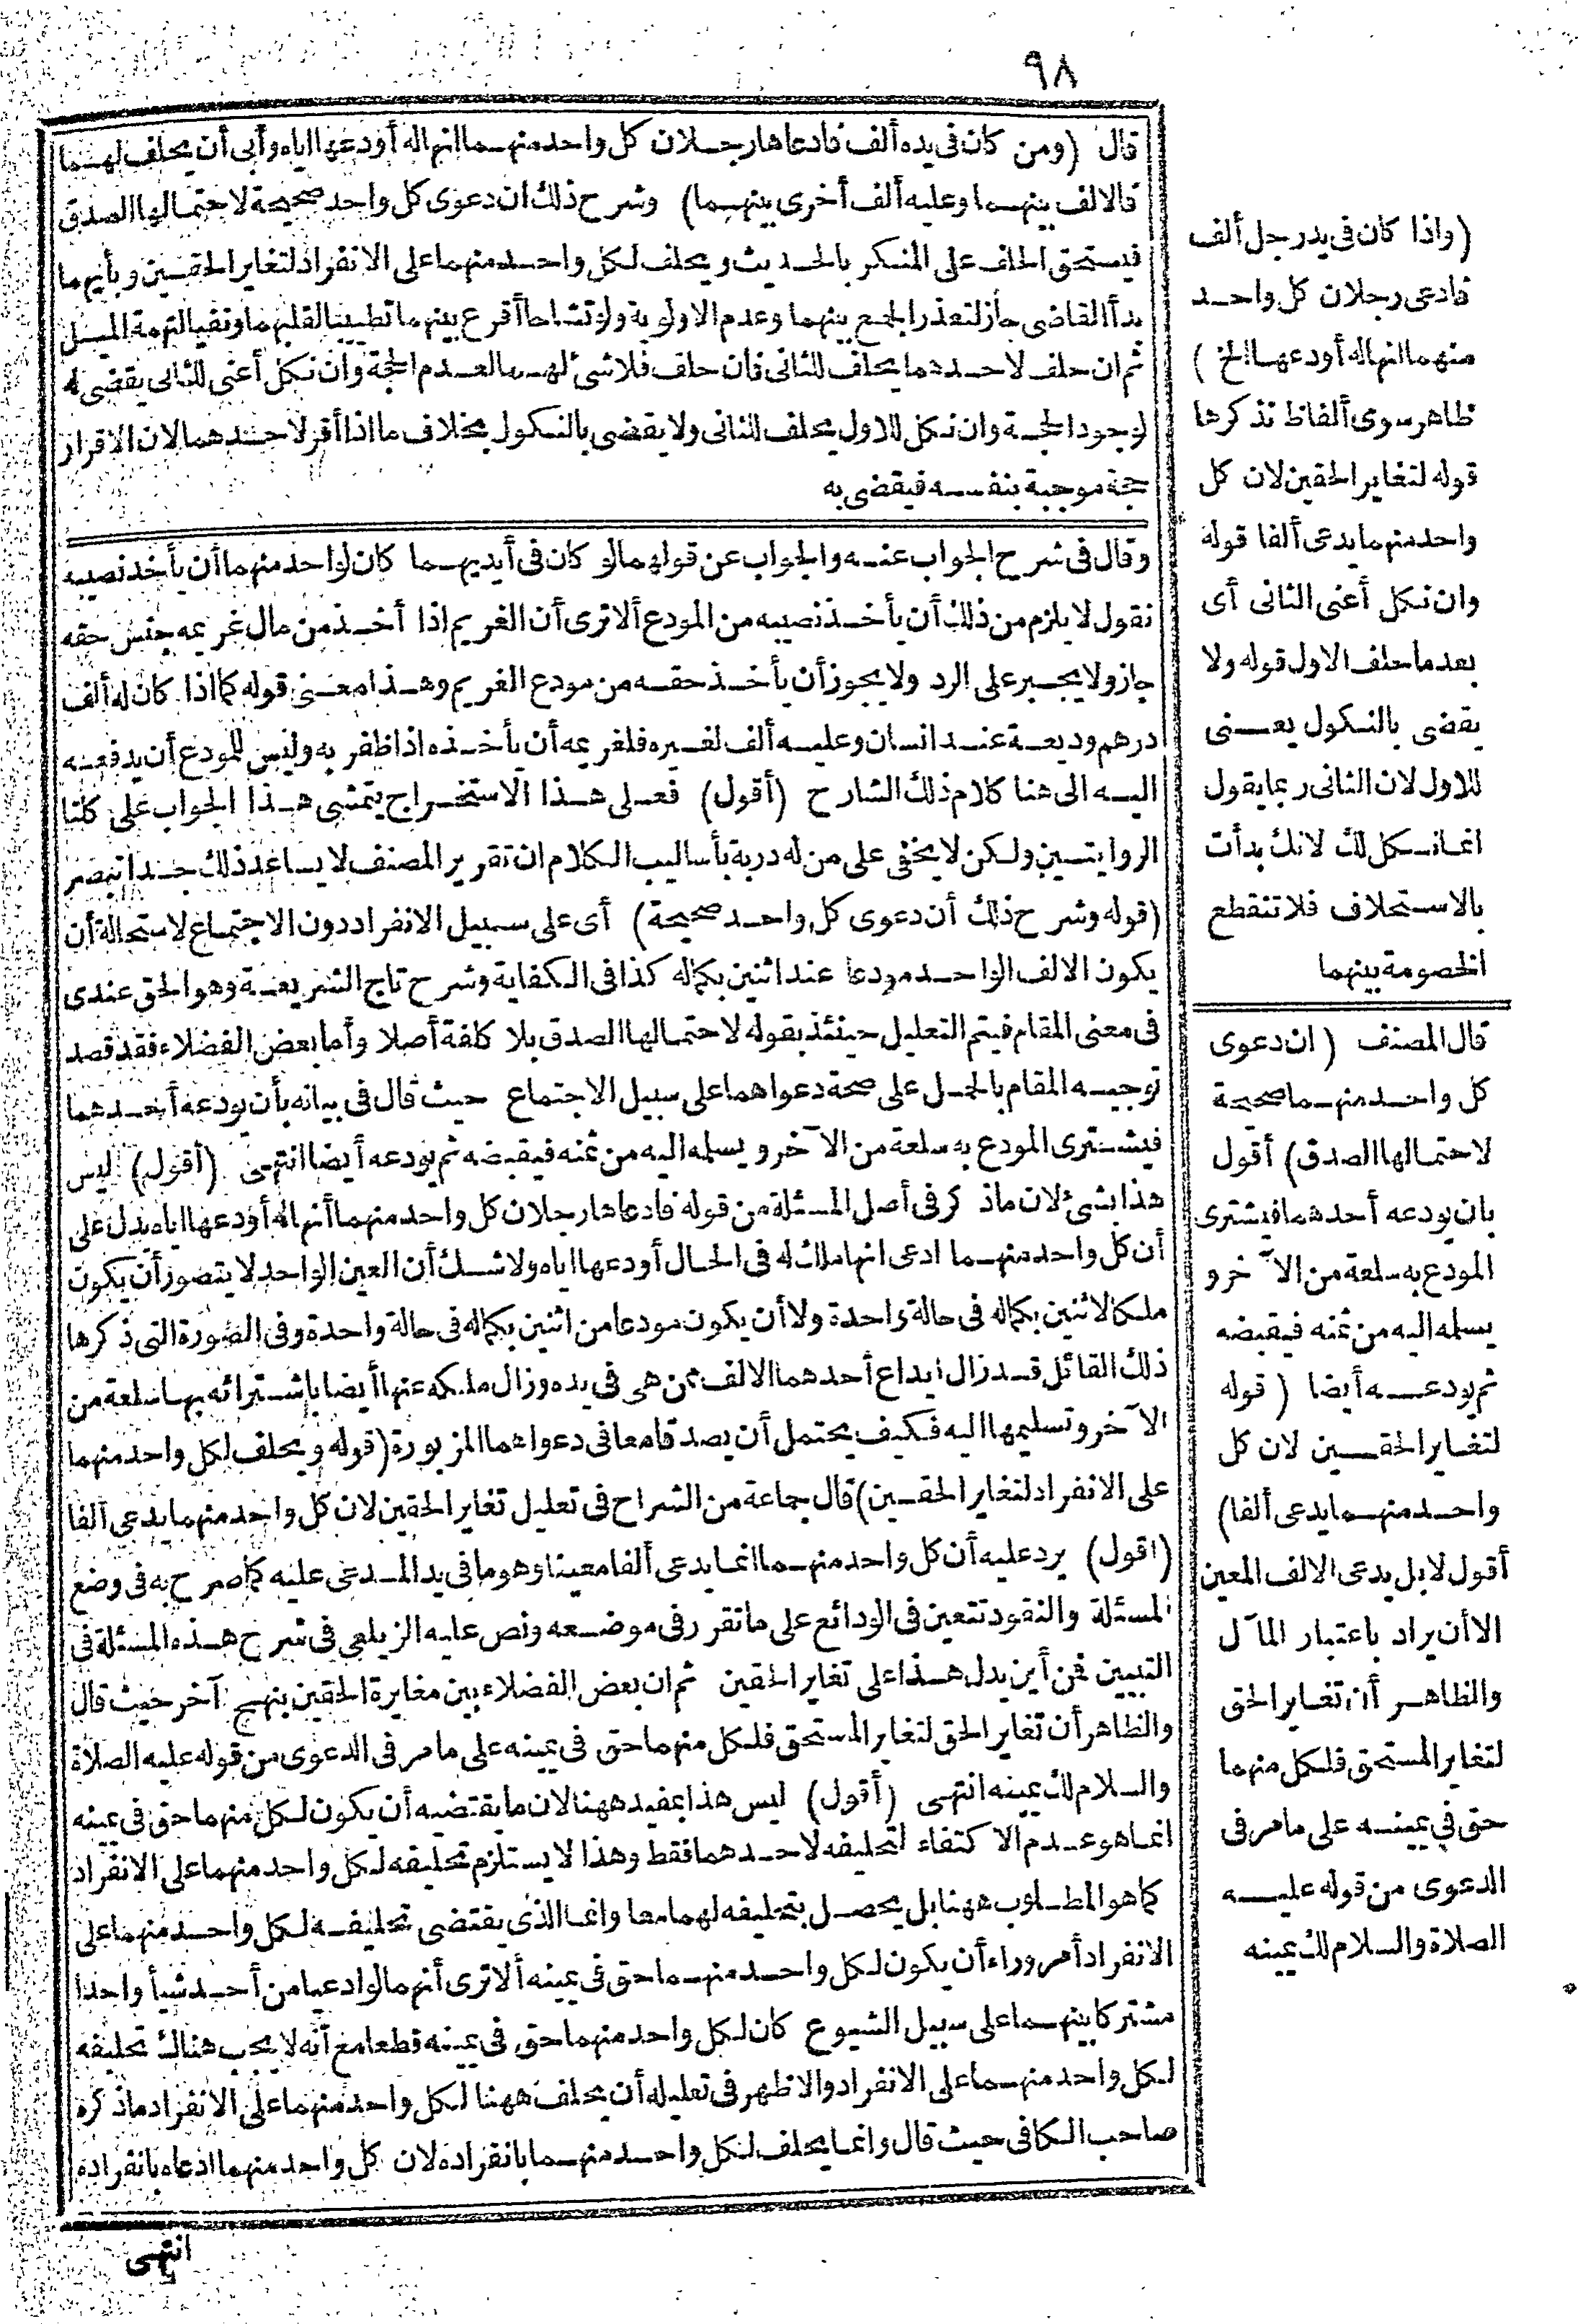 ٩٨
قال (ومن كان في يده ألف فادعاها رجلان كل واحد منهما انها له أودعها اياه وأبى أن يحلف لهما
فالالف بينهما وعليه ألف أخرى بينهما) وشرح ذلك ان دعوى كل واحد صحيحة لاحتمالها الصدق
فيستحق الحلف على المنكر بالحديث ويحلف لكل واحد منهما على الانفراد لتغاير الحقين وبأيهما
بدأ القاضي جاز لتعذر الجمع بينهما وعدم الاولوية ولو تشاحا أقرع بينهما تطييبا لقلبهما ونفيا لتهمة الميل
ثم ان حلف لاحدهما يحلف للثاني فان حلف فلا شئ لهما لعدم الحجة وان نكل أعنى للثاني يقضى له
لوجود الحجة وان نكل للاول يحلف للثاني ولا يقضى بالنكول بخلاف ما اذا أقر لاحدهما لان الاقرار
حجة موجبة بنفسه فيقضى به
وقال في شرح الجواب عنه والجواب عن قولهما لو كان في أيديهما كان لواحد منهما أن يأخذ نصيبه
نقول لا يلزم من ذلك أن يأخذ نصيبه من المودع ألا ترى أن الغريم اذا أخذ من مال غريمه جنس حقه
جاز ولا يجبر على الرد ولا يجوز أن يأخذ حقه من مودع الغريم وهذا معنى قوله كما اذا كان له ألف
درهم وديعة عند انسان وعليه ألف لغيره فلغريمه أن يأخذه اذا ظفر به وليس للمودع أن يدفعه
اليه الى هنا كلام ذلك الشارح (أقول) فعلى هذا الاستخراج يتمشى هذا الجواب على كلتا
الروايتين ولكن لا يخفى على من له دربة بأساليب الكلام ان تقرير المصنف لا يساعد ذلك جدا تبصر
(قوله وشرح ذلك أن دعوى كل واحد صحيحة) أى على سبيل الانفراد دون الاجتماع لاستحالة أن
يكون الالف الواحد مودعا عند اثنين بكماله كذا في الكفاية وشرح تاج الشريعة وهو الحق عندى
في معنى المقام فيتم التعليل حينئذ بقوله لاحتمالها الصدق بلا كلفة أصلا وأما بعض الفضلاء فقد قصد
توجيه المقام بالحمل على صحة دعواهما على سبيل الاجتماع حيث قال في بيانه بأن يودعه أحدهما
فيشترى المودع به سلعة من الآخر ويسلمه اليه من ثمنه فيقبضه ثم يودعه أيضا انتهى (أقول) ليس
هذا بشئ لان ما ذكر في أصل المسئلة من قوله فادعاها رجلان كل واحد منهما أنها له أودعها اياه يدل على
أن كل واحد منهما ادعى انها ملك له في الحال أودعها اياه ولا شك أن العين الواحد لا يتصور أن يكون
ملكا لاثنين بكماله في حالة واحدة ولا أن يكون مودعا من اثنين بكماله في حالة واحدة وفي الصورة التى ذكرها
ذلك القائل قد زال ايداع أحدهما الالف ممن هى في يده وزال ملكه عنها أيضا باشترائه بها سلعة من
الآخر وتسليمها اليه فكيف يحتمل أن يصدقا معا في دعواهما المزبورة (قوله ويحلف لكل واحد منهما
على الانفراد لتغاير الحقين) قال جماعة من الشراح في تعليل تغاير الحقين لان كل واحد منهما يدعى ألفا
(أقول) يرد عليه أن كل واحد منهما انما يدعى ألفا معينا وهو ما في يد المدعى عليه كما صرح به في وضع
المسئلة والنقود تتعين في الودائع على ما تقرر في موضعه ونص عليه الزيلعي في شرح هذه المسئلة في
التبيين فمن أين يدل هذا على تغاير الحقين ثم ان بعض الفضلاء بين مغايرة الحقين بنهج آخر حيث قال
والظاهر أن تغاير الحق لتغاير المستحق فلكل منهما حق في يمينه على ما مر في الدعوى من قوله عليه الصلاة
والسلام لك يمينه انتهى (أقول) ليس هذا بمفيد ههنا لان ما يقتضيه أن يكون لكل منهما حق في يمينه
انما هو عدم الاكتفاء لتحليفه لاحدهما فقط وهذا لا يستلزم تحليفه لكل واحد منهما على الانفراد
كما هو المطلوب ههنا بل يحصل بتحليفه لهما معا وانما الذى يقتضى تحليفه لكل واحد منهما على
الانفراد أمر وراء أن يكون لكل واحد منهما حق في يمينه ألا ترى أنهما لو ادعيا من أحد شيأ واحدا
مشتركا بينهما على سبيل الشيوع كان لكل واحد منهما حق في يمينه قطعا مع أنه لا يجب هناك تحليفه
لكل واحد منهما على الانفراد والاظهر في تعليله أن يحلف ههنا لكل واحد منهما على الانفراد ما ذكره
صاحب الكافى حيث قال وانما يحلف لكل واحد منهما بانفراده لان كل واحد منهما ادعاه بانفراده
انتهى
(واذا كان في يد رجل ألف
فادعى رجلان كل واحد
منهما انها له أودعها الخ)
ظاهر سوى ألفاظ نذكرها
قوله لتغاير الحقين لان كل
واحد منهما يدعى ألفا قوله
وان نكل أعنى الثانى أى
بعد ما حلف الاول قوله ولا
يقضى بالنكول يعنى
للاول لان الثانى ربما يقول
انما نكل لك لانك بدأت
بالاستحلاف فلا تنقطع
الخصومة بينهما
قال المصنف (ان دعوى
كل واحد منهما صحيحة
لاحتمالها الصدق) أقول
بان يودعه أحدهما فيشترى
المودع به سلعة من الآخر و
يسلمه اليه من ثمنه فيقبضه
ثم يودعه أيضا (قوله
لتغاير الحقين لان كل
واحد منهما يدعى ألفا)
أقول لا بل يدعى الالف المعين
الا أن يراد باعتبار المآل
والظاهر أن تغاير الحق
لتغاير المستحق فلكل منهما
حق في يمينه على ما مر في
الدعوى من قوله عليه
الصلاة والسلام لك يمينه